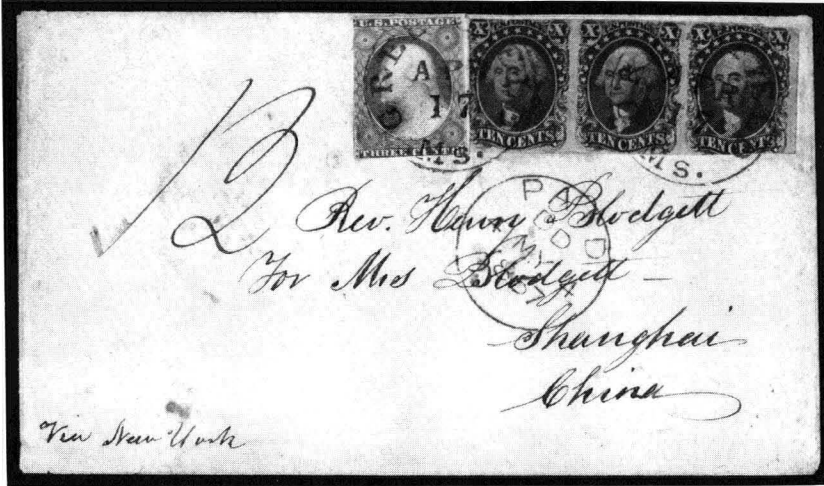 U.S. POSTAGE
THREE CENTS
X X
TEN CENTS
X X
TEN CENTS
X X
TEN CENTS
17
MS.
MS.
PAID
12
Rev. Henry Blodgett
For Mrs Blodgett
Shanghai
China
Via New York